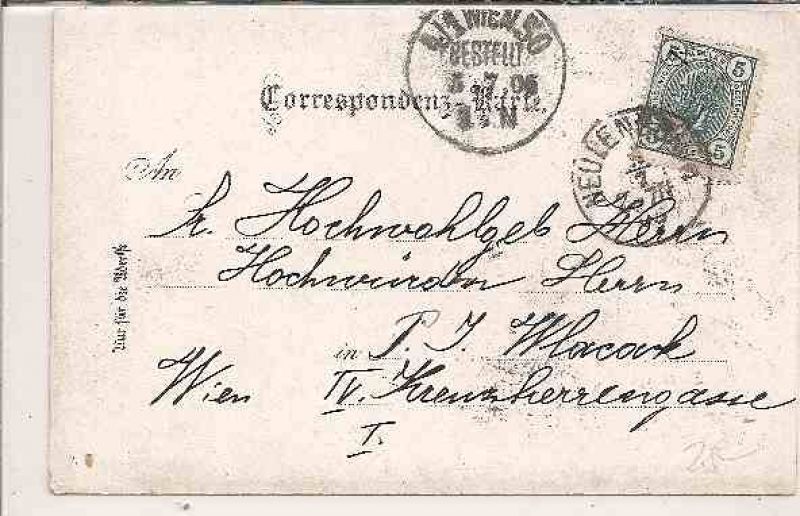 4/1 WIEN 50
BESTELLT
3 7 05
N
Correspondenz-Karte.
5 5
5 5
NEULEN
An
Sr. Hochwohlgeb Herrn
Hochwürden Herrn
Nur für die Adresse
in P. J. Wlacak
Wien IV. Kreuzherrengasse
I.
25